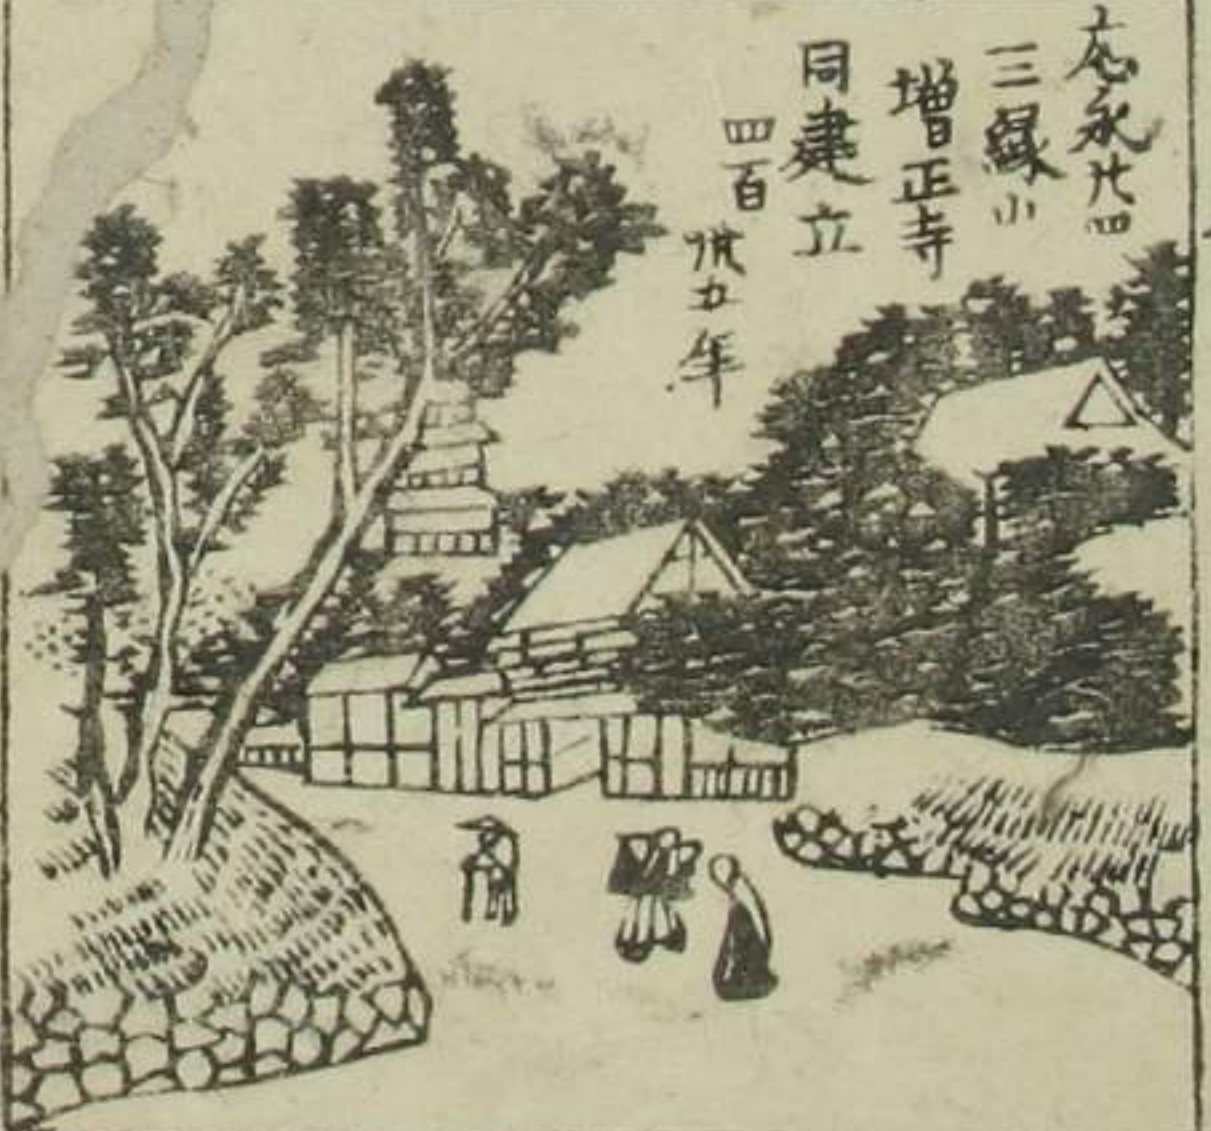 応永廿四
三縁山
増正寺
同建立
四百
卅五年